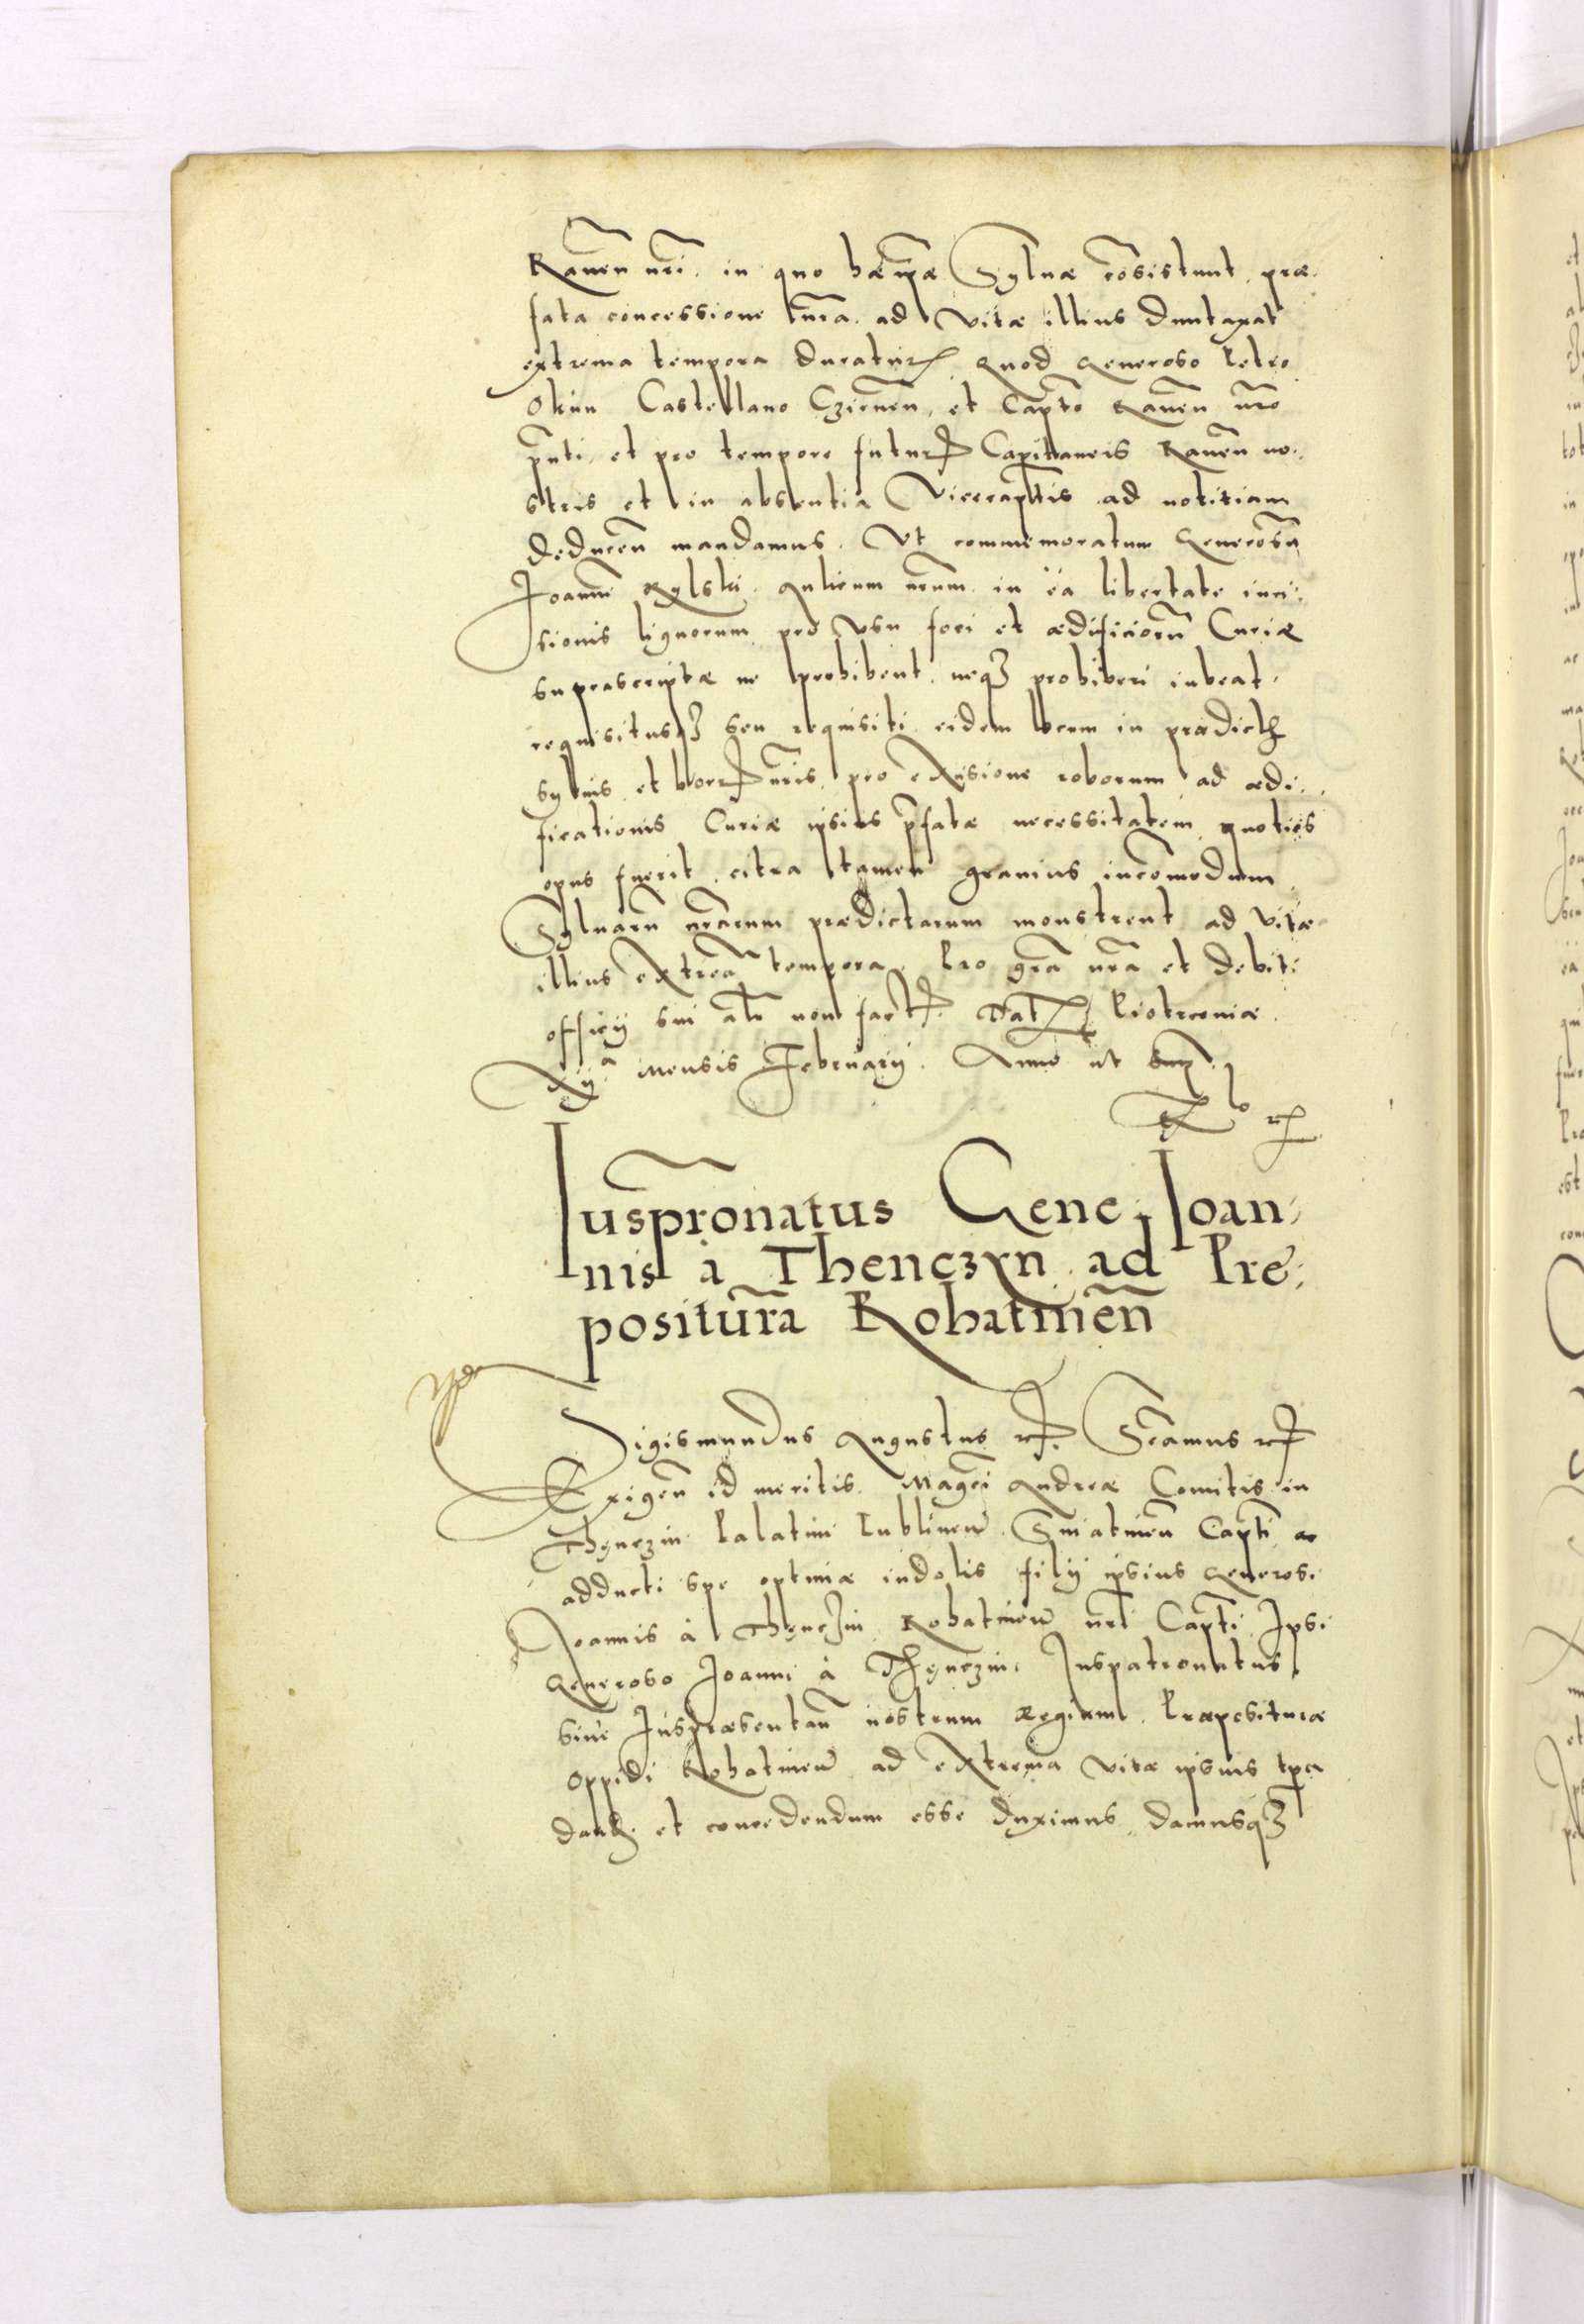 Rauen̄ nr̄i. in quo hæ ip̄æ Syluæ cōsistunt. præ.
fata concessione nr̄a. ad vitæ illius duntaxat
extrema tempora duratur. Quod Generoso Petro
Okun Castellano Czirnen̄. et Capt̄o Rauen̄ nr̄o
pn̄ti, et pro tempore futur Capitaneis Rauen̄ no..
stris et in absentia Vicecaptīs ad notitiam
deducen̄ mandamus. Vt commemoratum Generosū
Joannē Rylski Aulicum nr̄um in ea libertate inci:
sionis lignorum pro vsu foci et ædificiorū Curiæ
suprascriptæ ne prohibeat. neqꝫ prohiberi iubeat.
requisitusqꝫ seu requisiti eidem locum in prædict
syluis et borr nr̄is pro exisione roborum ad ædi..
ficationis Curiæ ipsius p̄fatæ necessitatem quoties
opus fuerit. citra tamen grauius incōmodum
Syluarū nr̄arum prædictarum monstrent ad vitæ
illius extrēa tempora. Pro grā nr̄a et debiti
officij sui alr̄ non fact. Dat Piotrcouiæ.
xijª mensis Februarij. Anno ut sup.
Iusprōnatus Gene. Joan:
nis à Thenczyn ad Pre:
positurā Rohatinen̄
Sigismundus Augustus rꝛ. Sc̄amus rꝛ
Exigen̄ id meritis. Magc̄i Andreæ Comitis in
Thęnczin Palatini Lublinen̄. Sniatinen̄ Captī ac
adducti spe optimæ indolis filij ipsius Generosi
Joannis à Thęnczin Rohatinen̄ nr̄i Captī. Ipsi
Generoso Joanni à Thęnczin. Juspatronatus
siue Juspræsentan̄ nostrum Regium Præposituræ
Oppidi Rohatinen̄ ad extrema vitæ ipsius tp̄a
dand et concedendum esse duximus, damusqꝫ